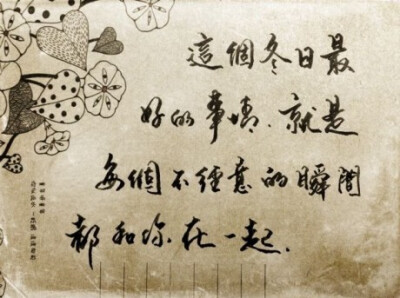 這個冬日最
好的事情、就是
每個不經意的瞬間
都和你在一起.